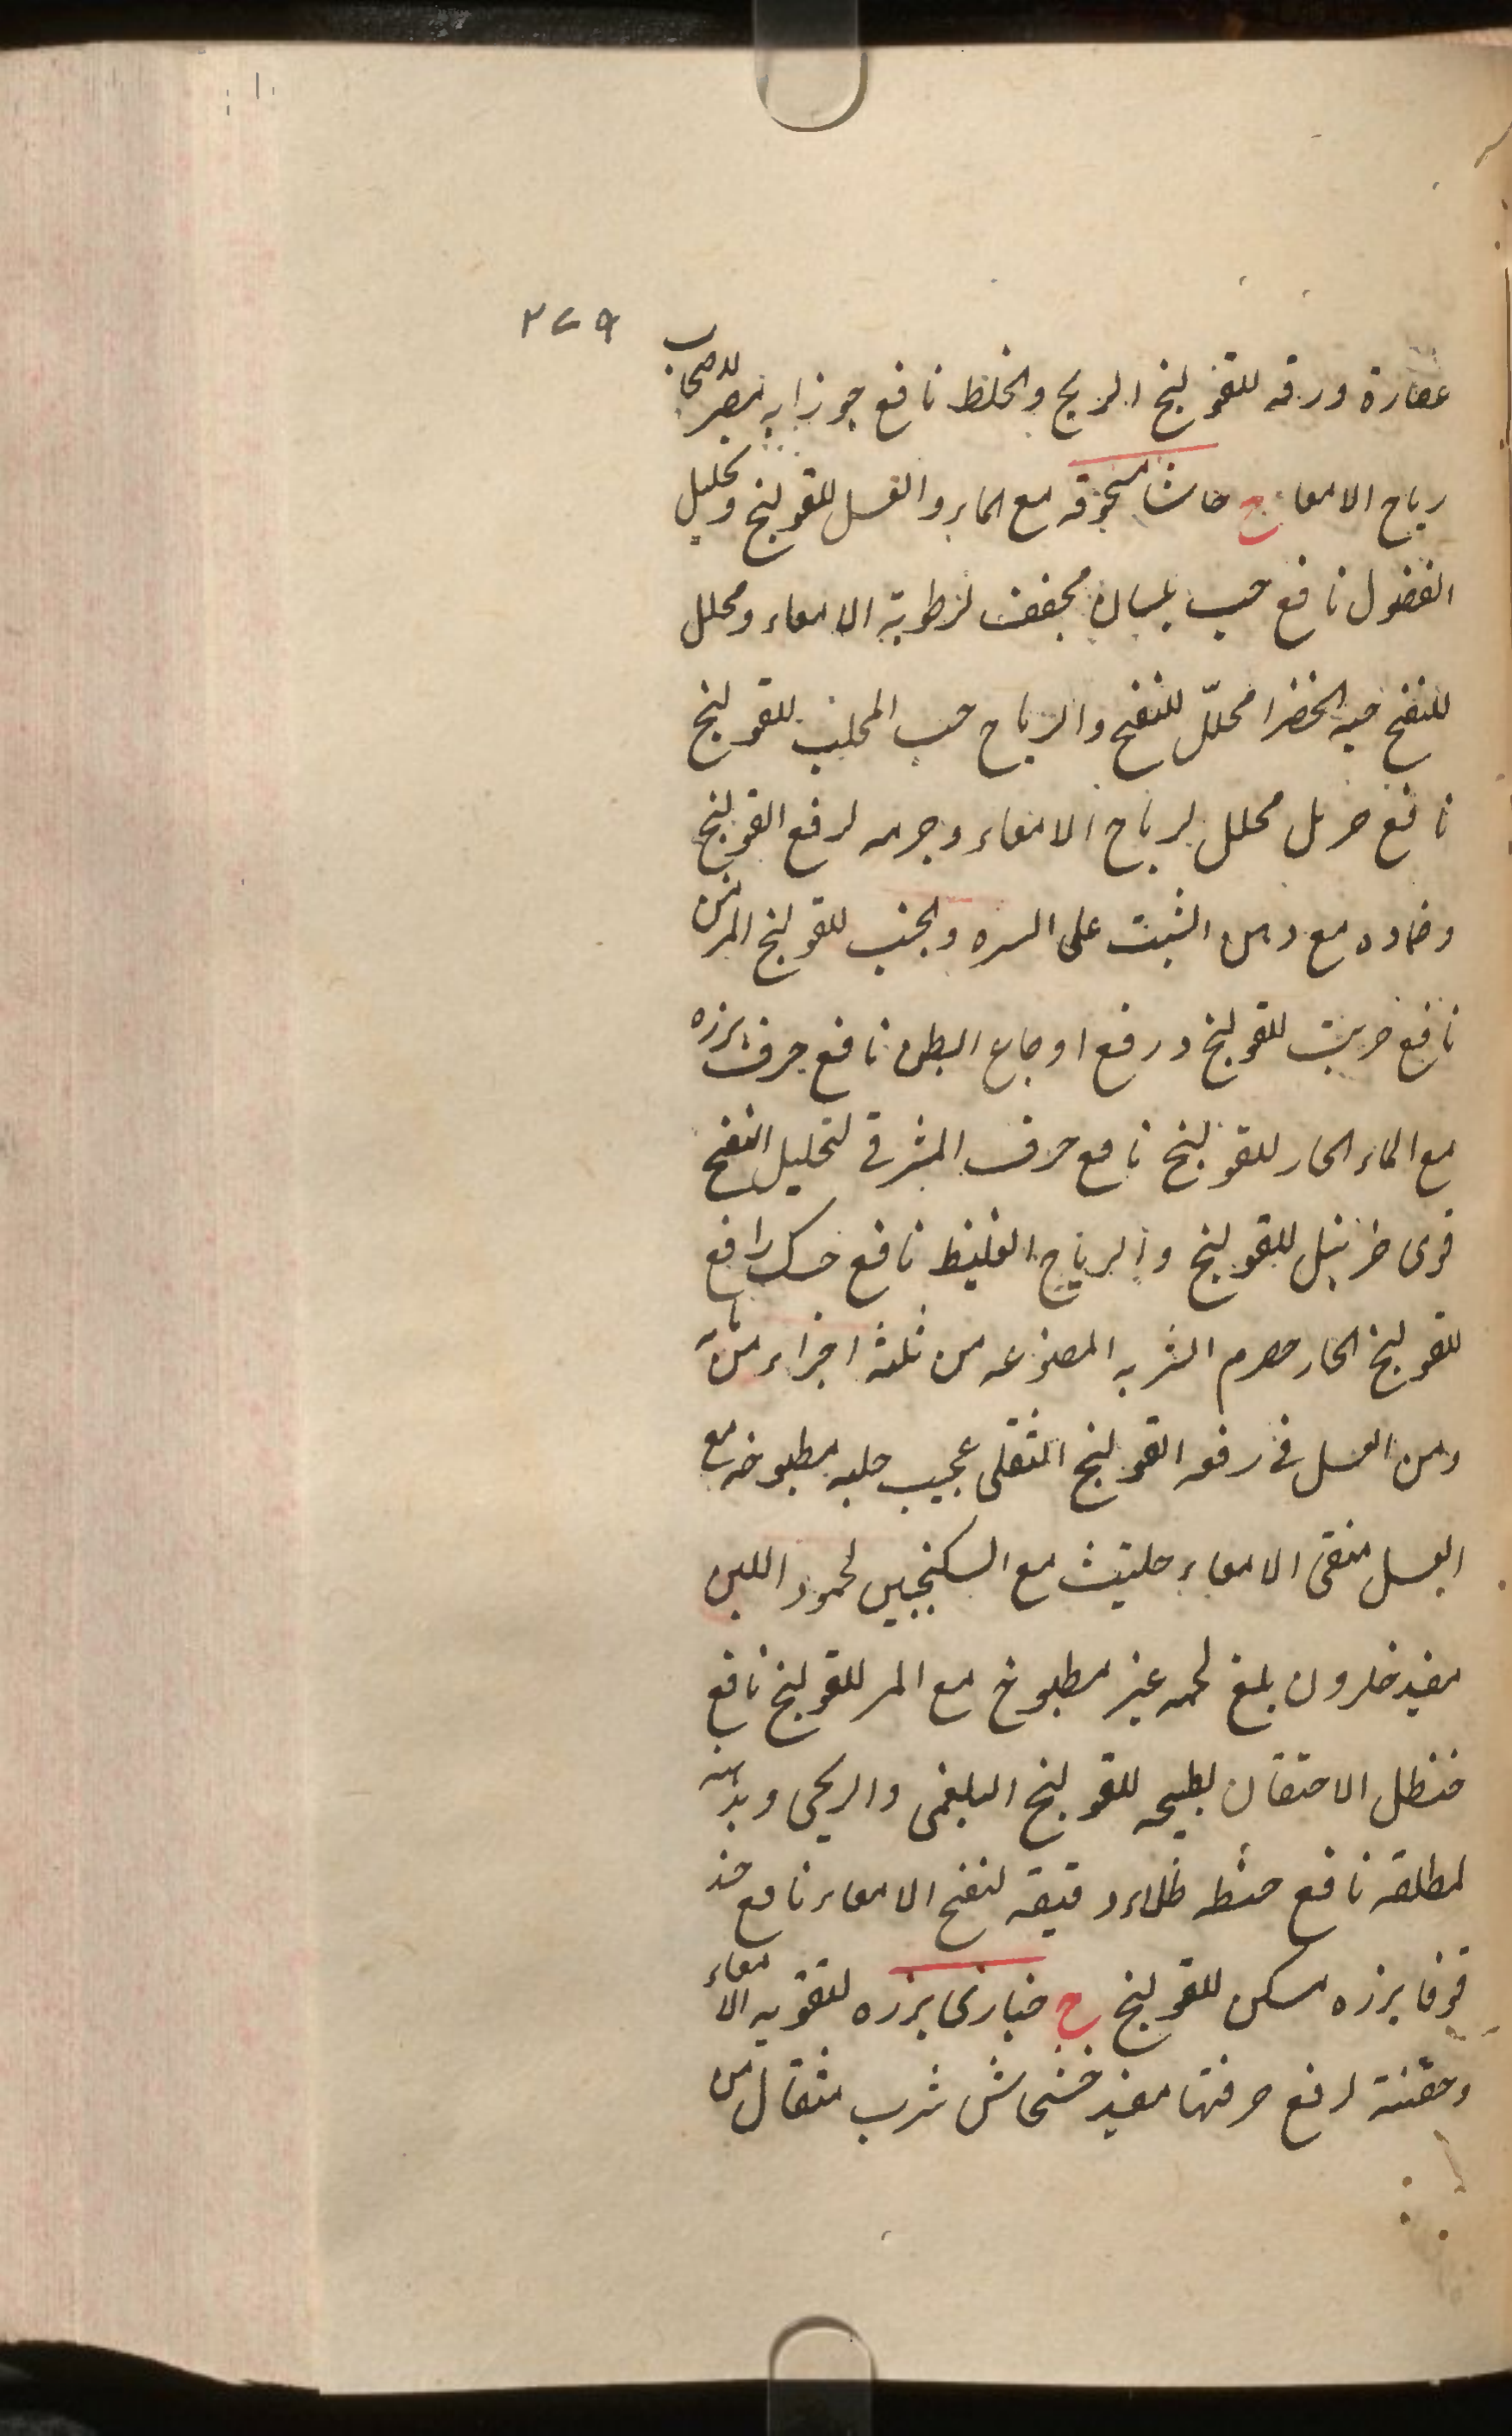 ٢٧٩
عصارة ورقه للقولنج الريح والخلط نافع جوزابه مضر لاصحاب
رياح الامعا ح حاشا مسحوقه مع الماء والعسل للقولنج وتحليل
الفضول نافع حب بلسان مجفف لرطوبة الامعاء ومحلل
للنفخ حبه الخضرا محلّل للنفخ والرياح حب المحلب للقولنج
نافع حرمل محلل لرياح الامعاء وجرمه لرفع القولنج
وضماده مع دهن الشبت على السره والجنب للقولنج المزمن
نافع حربث للقولنج ورفع اوجاع البطن نافع حرف بزره
مع الماء الحار للقولنج نافع حرف المشرقي لتحليل النفخ
قوى حزنبل للقولنج والرياح الغليظ نافع حسك رافع
للقولنج الحار حصرم الشربه المصنوعه من ثلثه اجزاء منه
ومن العسل في رفعه القولنج الثفلى عجيب حلبه مطبوخه مع
العسل منقى الامعاء حلتيث مع السكنجبين لجمود اللبن
مفيد حلزون بلع لحمه غير مطبوخ مع المر للقولنج نافع
حنظل الاحتقان بطبيخه للقولنج البلغمى والريحى وبدهنه
لمطلقه نافع حنطه طلاء دقيقه لنفخ الامعاء نافع حند
قوقا بزره مسكن للقولنج خ خبازى بزره لتقويه الامعاء
وحقنته لرفع حرقتها مفيد خشخاش شرب مثقال من